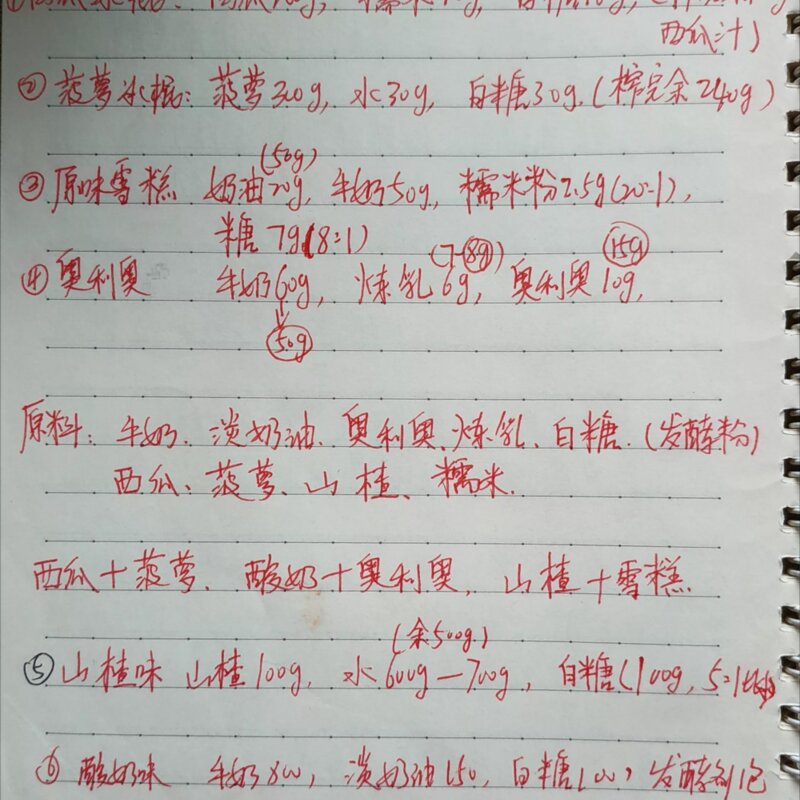 西瓜汁)
② 菠萝冰棍: 菠萝300g, 水30g, 白糖30g.(榨完余240g)
(50g)
③ 原味雪糕 奶油20g, 牛奶50g, 糯米粉2.5g(20:1),
糖7g(8:1)
(7-8g) 15g
④ 奥利奥 牛奶60g, 炼乳6g, 奥利奥10g,
50g
原料: 牛奶、淡奶油、奥利奥、炼乳、白糖.(发酵粉)
西瓜、菠萝、山楂、糯米.
西瓜+菠萝、酸奶+奥利奥, 山楂+雪糕
(余500g)
⑤ 山楂味 山楂100g, 水600g—700g, 白糖(100g, 5:1
⑥ 酸奶味 牛奶800, 淡奶油150, 白糖100, 发酵剂1包